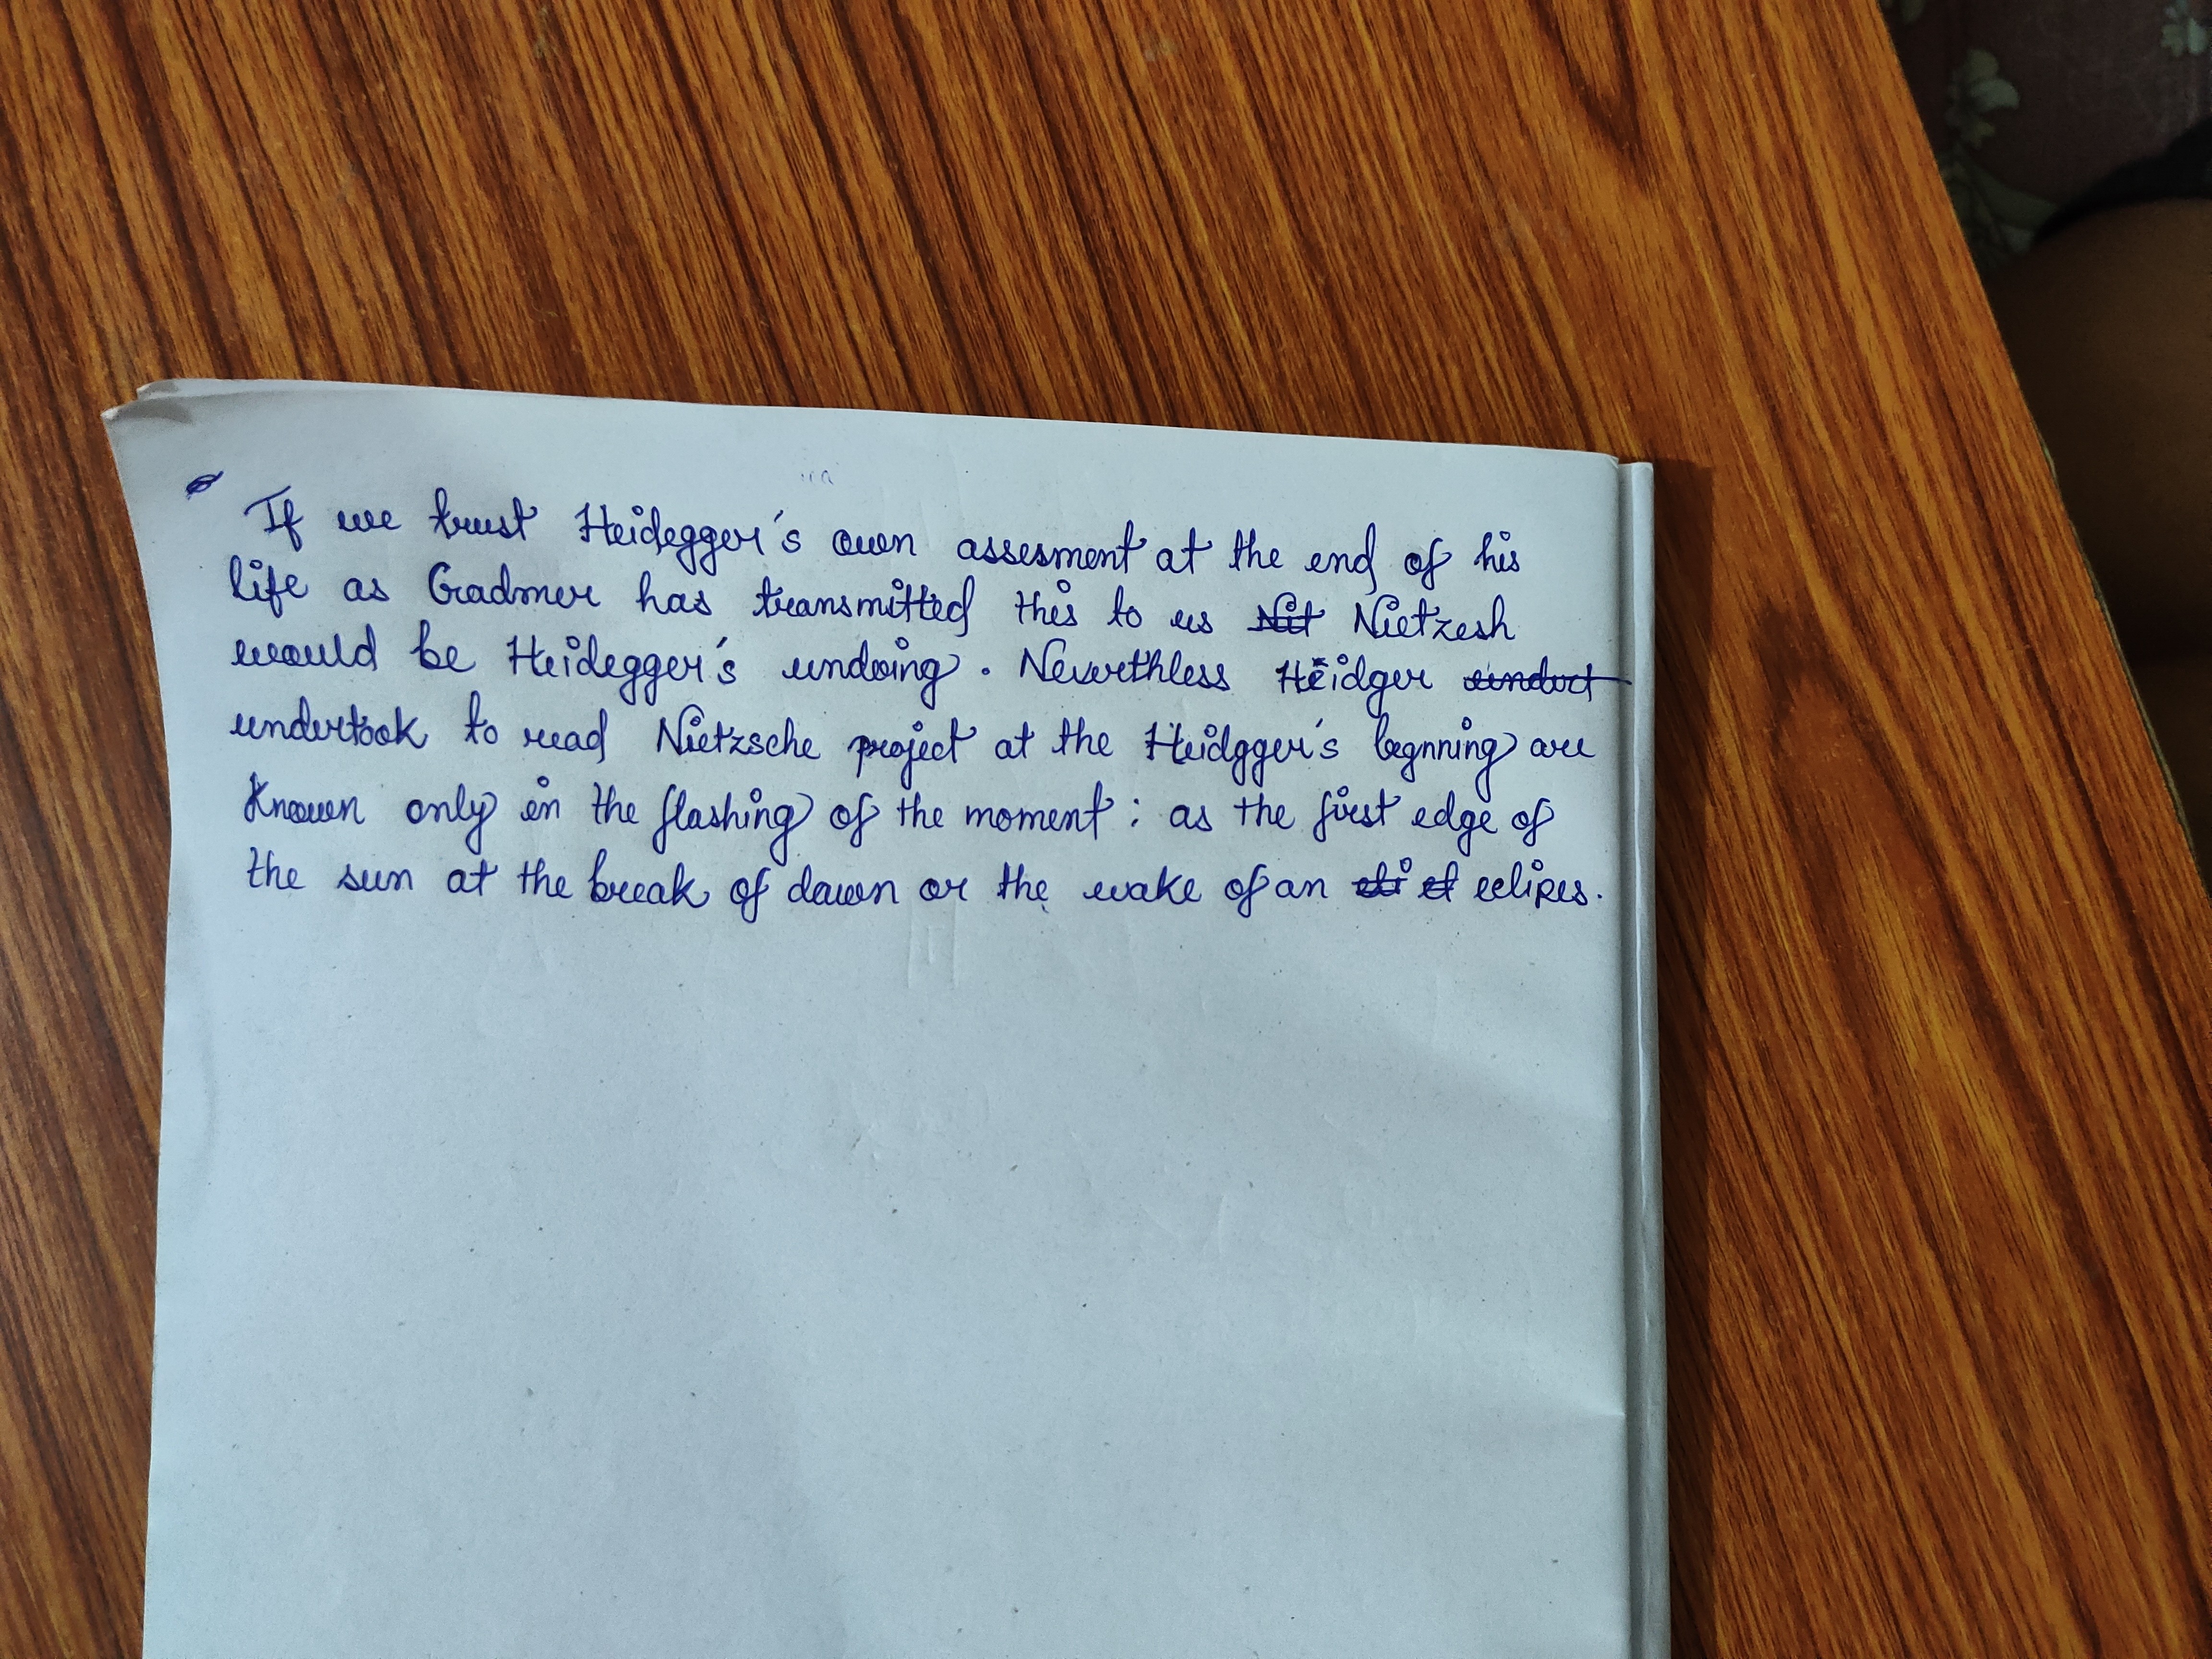 If we trust Heidegger's own assesment at the end of his
life as Gadmer has transmitted this to us Nit Nietzesh
would be Heidegger's undoing. Neverthless Heidger
undertook to read Nietzsche project at the Heidgger's begnning are
known only in the flashing of the moment : as the first edge of
the sun at the break of dawn or the wake of an eclipes.